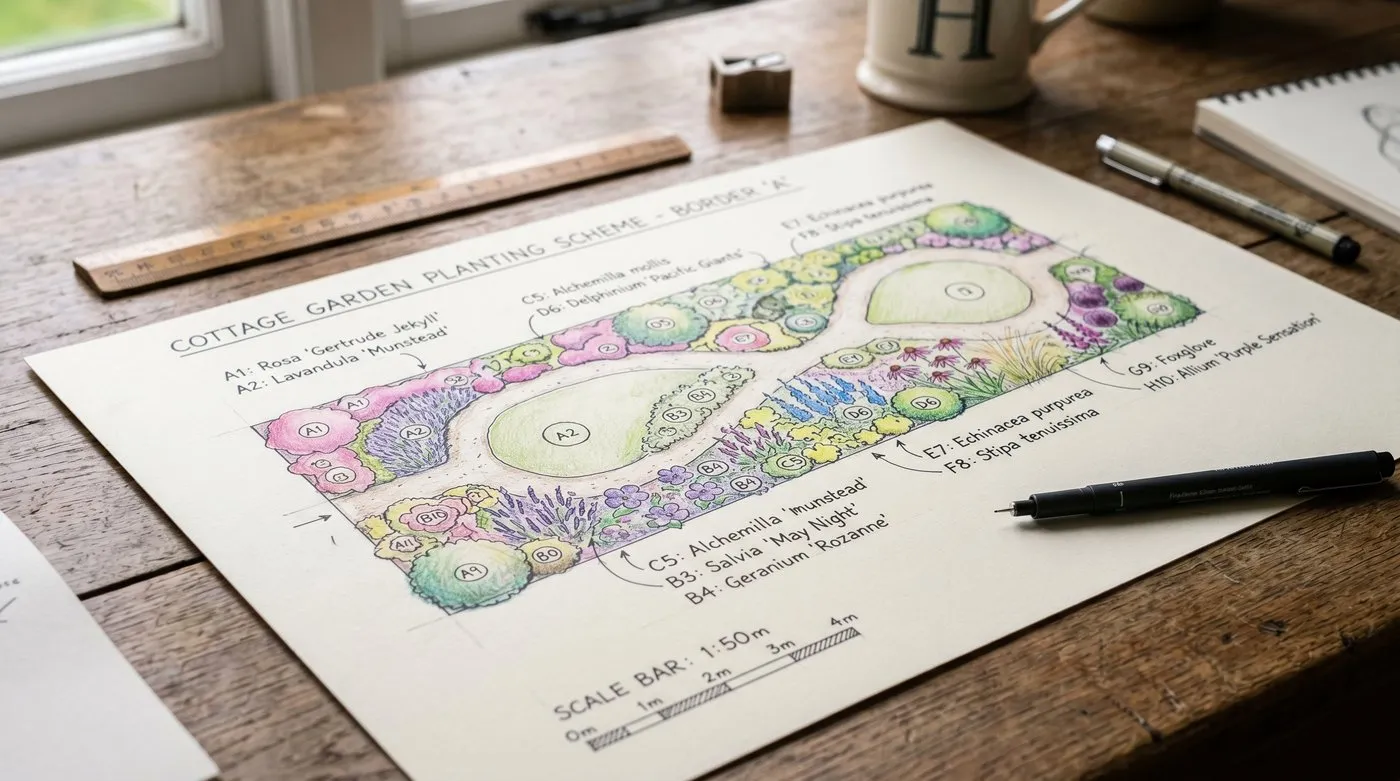 H
COTTAGE GARDEN PLANTING SCHEME - BORDER 'A'
A1: Rosa 'Gertrude Jekyll'
A2: Lavandula 'Munstead'
C5: Alchemilla mollis
D6: Delphinium 'Pacific Giants'
E7: Echinacea purpurea
F8: Stipa tenuissima
A1
A2
A2
B3
B4
D6
D6
C5
B4
B4
B10
A11
A9
B0
E7
G9: Foxglove
H10: Allium 'Purple Sensation'
E7: Echinacea purpurea
F8: Stipa tenuissima
C5: Alchemilla 'munstead'
B3: Salvia 'May Night'
B4: Geranium 'Rozanne'
SCALE BAR: 1:50m
0m 1m 2m 3m 4m